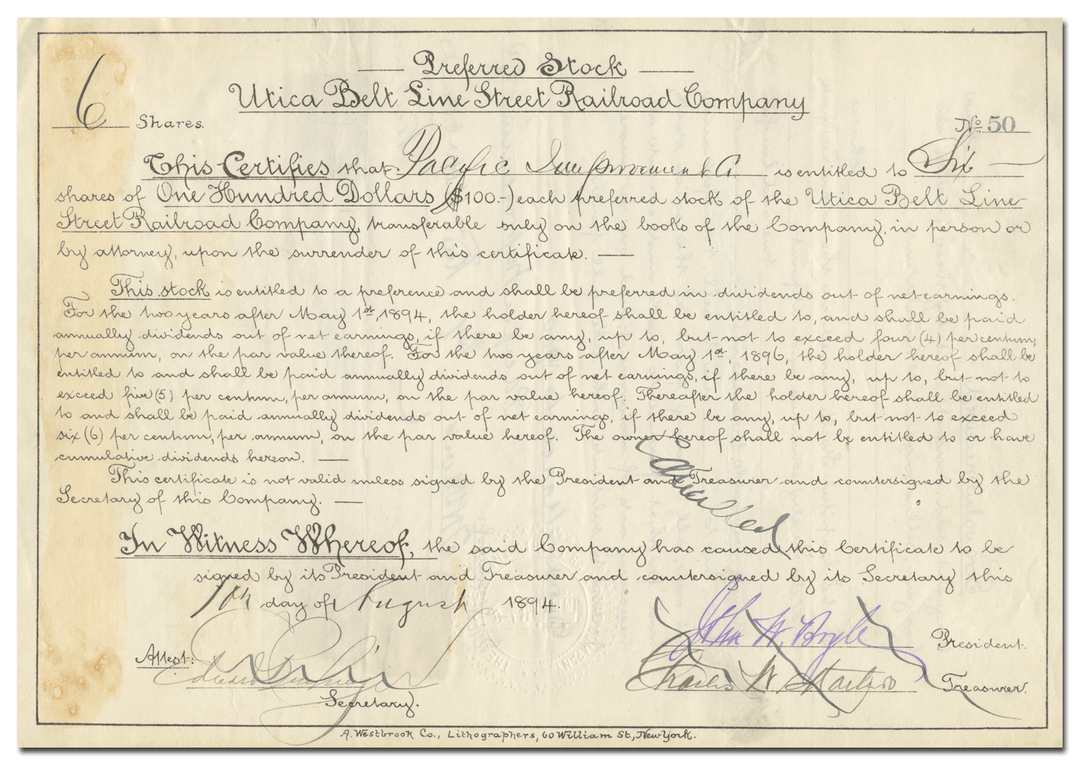 Preferred Stock
Utica Belt Line Street Railroad Company
6 Shares.
No 50
This Certifies that Pacific Improvement Co is entitled to Six
shares of One Hundred Dollars ($100.-) each preferred stock of the Utica Belt Line
Street Railroad Company, transferable only on the books of the Company, in person or
by attorney, upon the surrender of this certificate. —
This stock is entitled to a preference and shall be preferred in dividends out of net earnings.
For the two years after May 1st, 1894, the holder hereof shall be entitled to, and shall be paid
annually dividends out of net earnings, if there be any, up to, but not to exceed four (4) per centum,
per annum, on the par value thereof. For the two years after May 1st, 1896, the holder hereof shall be
entitled to and shall be paid annually dividends out of net earnings, if there be any, up to, but not to
exceed five (5) per centum, per annum, on the par value hereof. Thereafter the holder hereof shall be entitled
to and shall be paid annually dividends out of net earnings, if there be any, up to, but not to exceed
six (6) per centum, per annum, on the par value hereof. The owner hereof shall not be entitled to or have
cumulative dividends hereon. —
Cancelled
This certificate is not valid unless signed by the President and Treasurer and countersigned by the
Secretary of this Company. —
In Witness Whereof, the said Company has caused this Certificate to be
signed by its President and Treasurer and countersigned by its Secretary this
day of August 1894.
John W Boyle President.
Attest:
Charles W Treasurer.
Secretary.
A. Westbrook Co., Lithographers, 60 William St, New York.